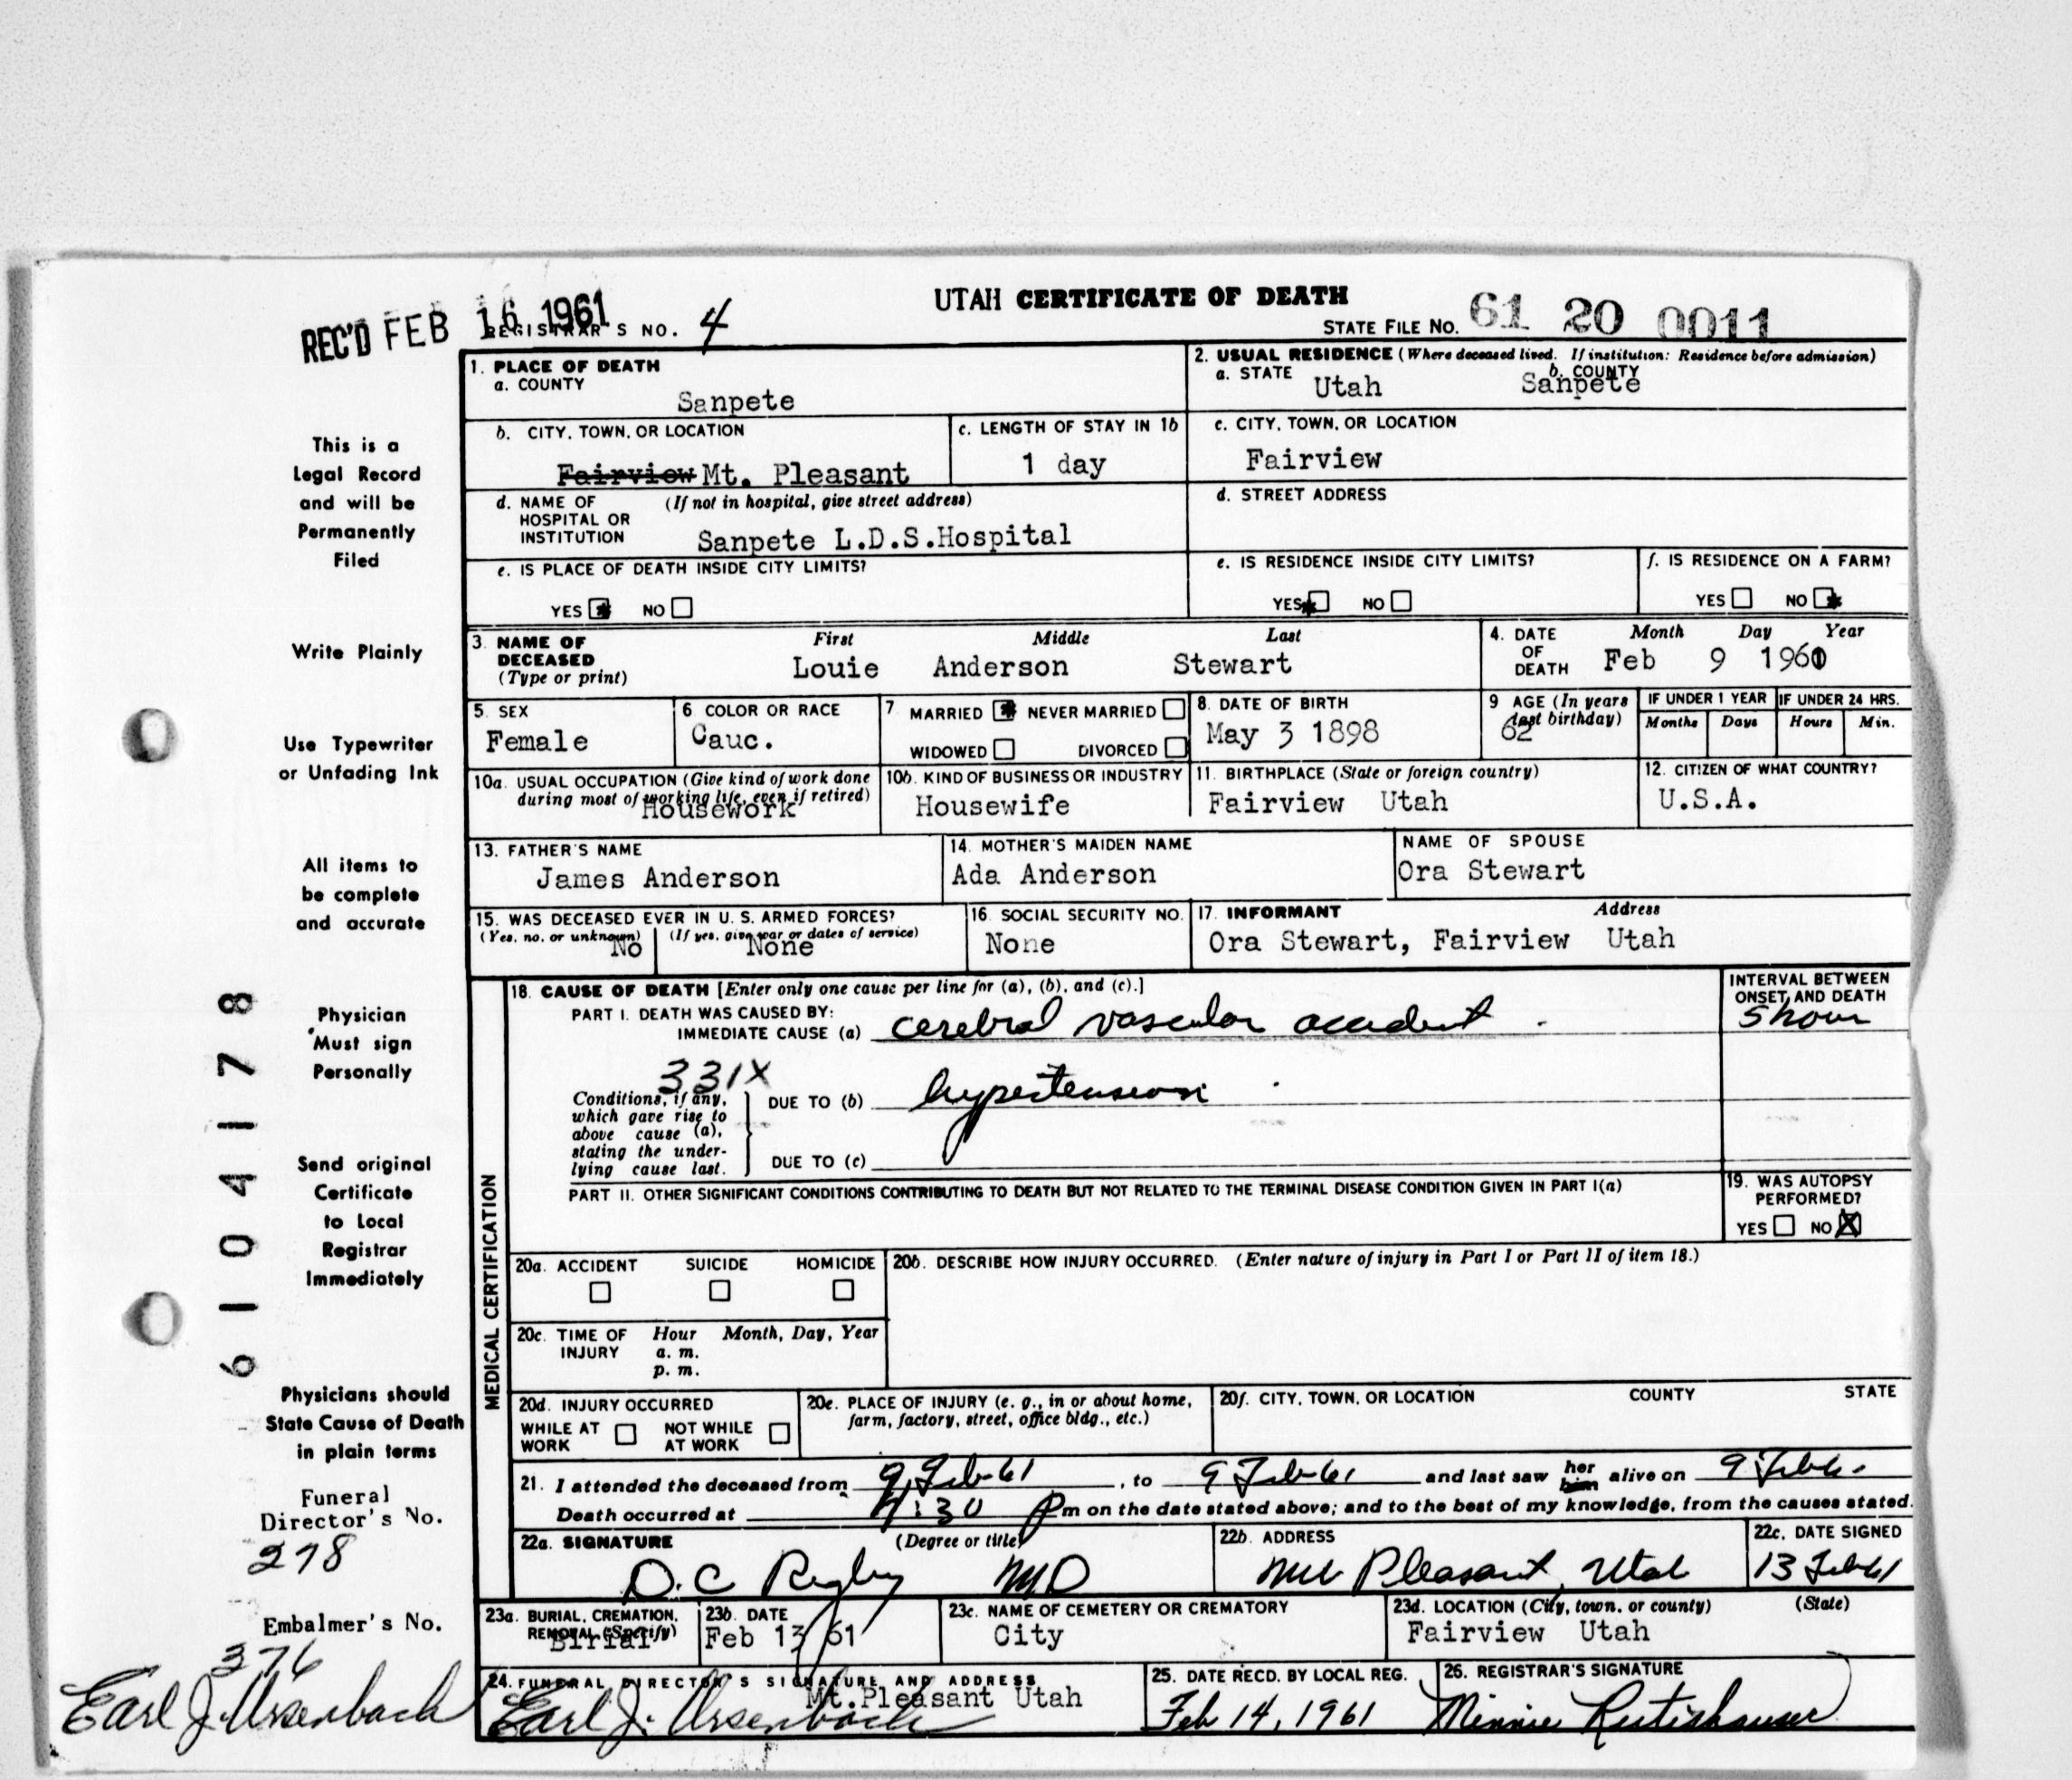 UTAH CERTIFICATE OF DEATH
REC'D FEB 16 1961
REGISTRAR'S NO. 4
STATE FILE NO. 61 20 0011
1. PLACE OF DEATH
a. COUNTY
Sanpete
2. USUAL RESIDENCE (Where deceased lived. If institution: Residence before admission)
a. STATE Utah b. COUNTY Sanpete
b. CITY, TOWN, OR LOCATION
Fairview Mt. Pleasant
c. LENGTH OF STAY IN 1b
1 day
c. CITY, TOWN, OR LOCATION
Fairview
d. NAME OF HOSPITAL OR INSTITUTION (If not in hospital, give street address)
Sanpete L.D.S.Hospital
d. STREET ADDRESS
e. IS PLACE OF DEATH INSIDE CITY LIMITS?
YES NO
e. IS RESIDENCE INSIDE CITY LIMITS?
YES NO
f. IS RESIDENCE ON A FARM?
YES NO
3. NAME OF DECEASED (Type or print)
First Middle Last
Louie Anderson Stewart
4. DATE OF DEATH
Month Day Year
Feb 9 1961
5. SEX
Female
6 COLOR OR RACE
Cauc.
7 MARRIED NEVER MARRIED
WIDOWED DIVORCED
8. DATE OF BIRTH
May 3 1898
9 AGE (In years last birthday)
62
IF UNDER 1 YEAR
Months Days
IF UNDER 24 HRS.
Hours Min.
10a. USUAL OCCUPATION (Give kind of work done during most of working life, even if retired)
Housework
10b. KIND OF BUSINESS OR INDUSTRY
Housewife
11. BIRTHPLACE (State or foreign country)
Fairview Utah
12. CITIZEN OF WHAT COUNTRY?
U.S.A.
13. FATHER'S NAME
James Anderson
14. MOTHER'S MAIDEN NAME
Ada Anderson
NAME OF SPOUSE
Ora Stewart
15. WAS DECEASED EVER IN U. S. ARMED FORCES?
(Yes, no, or unknown) (If yes, give war or dates of service)
No None
16. SOCIAL SECURITY NO.
None
17. INFORMANT Address
Ora Stewart, Fairview Utah
MEDICAL CERTIFICATION
18. CAUSE OF DEATH [Enter only one cause per line for (a), (b), and (c).]
INTERVAL BETWEEN ONSET AND DEATH
PART I. DEATH WAS CAUSED BY:
IMMEDIATE CAUSE (a) cerebral vascular accident 5 hour
331X
Conditions, if any, which gave rise to above cause (a), stating the underlying cause last.
DUE TO (b) hypertension
DUE TO (c)
PART II. OTHER SIGNIFICANT CONDITIONS CONTRIBUTING TO DEATH BUT NOT RELATED TO THE TERMINAL DISEASE CONDITION GIVEN IN PART I(a)
19. WAS AUTOPSY PERFORMED?
YES NO X
20a. ACCIDENT SUICIDE HOMICIDE
20b. DESCRIBE HOW INJURY OCCURRED. (Enter nature of injury in Part I or Part II of item 18.)
20c. TIME OF INJURY Hour Month, Day, Year
a. m.
p. m.
20d. INJURY OCCURRED
WHILE AT WORK NOT WHILE AT WORK
20e. PLACE OF INJURY (e. g., in or about home, farm, factory, street, office bldg., etc.)
20f. CITY, TOWN, OR LOCATION COUNTY STATE
21. I attended the deceased from 9 Feb-61, to 9 Feb-61 and last saw her him alive on 9 Feb 6.
Death occurred at 4:30 Pm on the date stated above; and to the best of my knowledge, from the causes stated.
22a. SIGNATURE (Degree or title)
D.C Rigby MD
22b. ADDRESS
Mt Pleasant, Utah
22c. DATE SIGNED
13 Feb 61
23a. BURIAL, CREMATION, REMOVAL (Specify)
Birial
23b. DATE
Feb 13/61
23c. NAME OF CEMETERY OR CREMATORY
City
23d. LOCATION (City, town, or county) (State)
Fairview Utah
24. FUNERAL DIRECTOR'S SIGNATURE AND ADDRESS
Mt.Pleasant Utah
Earl J. Ursenbach
25. DATE RECD. BY LOCAL REG.
Feb 14, 1961
26. REGISTRAR'S SIGNATURE
Minnie Rutishauser
This is a
Legal Record
and will be
Permanently
Filed
Write Plainly
Use Typewriter
or Unfading Ink
All items to
be complete
and accurate
Physician
Must sign
Personally
Send original
Certificate
to Local
Registrar
Immediately
Physicians should
State Cause of Death
in plain terms
Funeral
Director's No.
278
Embalmer's No.
376
Earl J. Ursenbach
61 04178